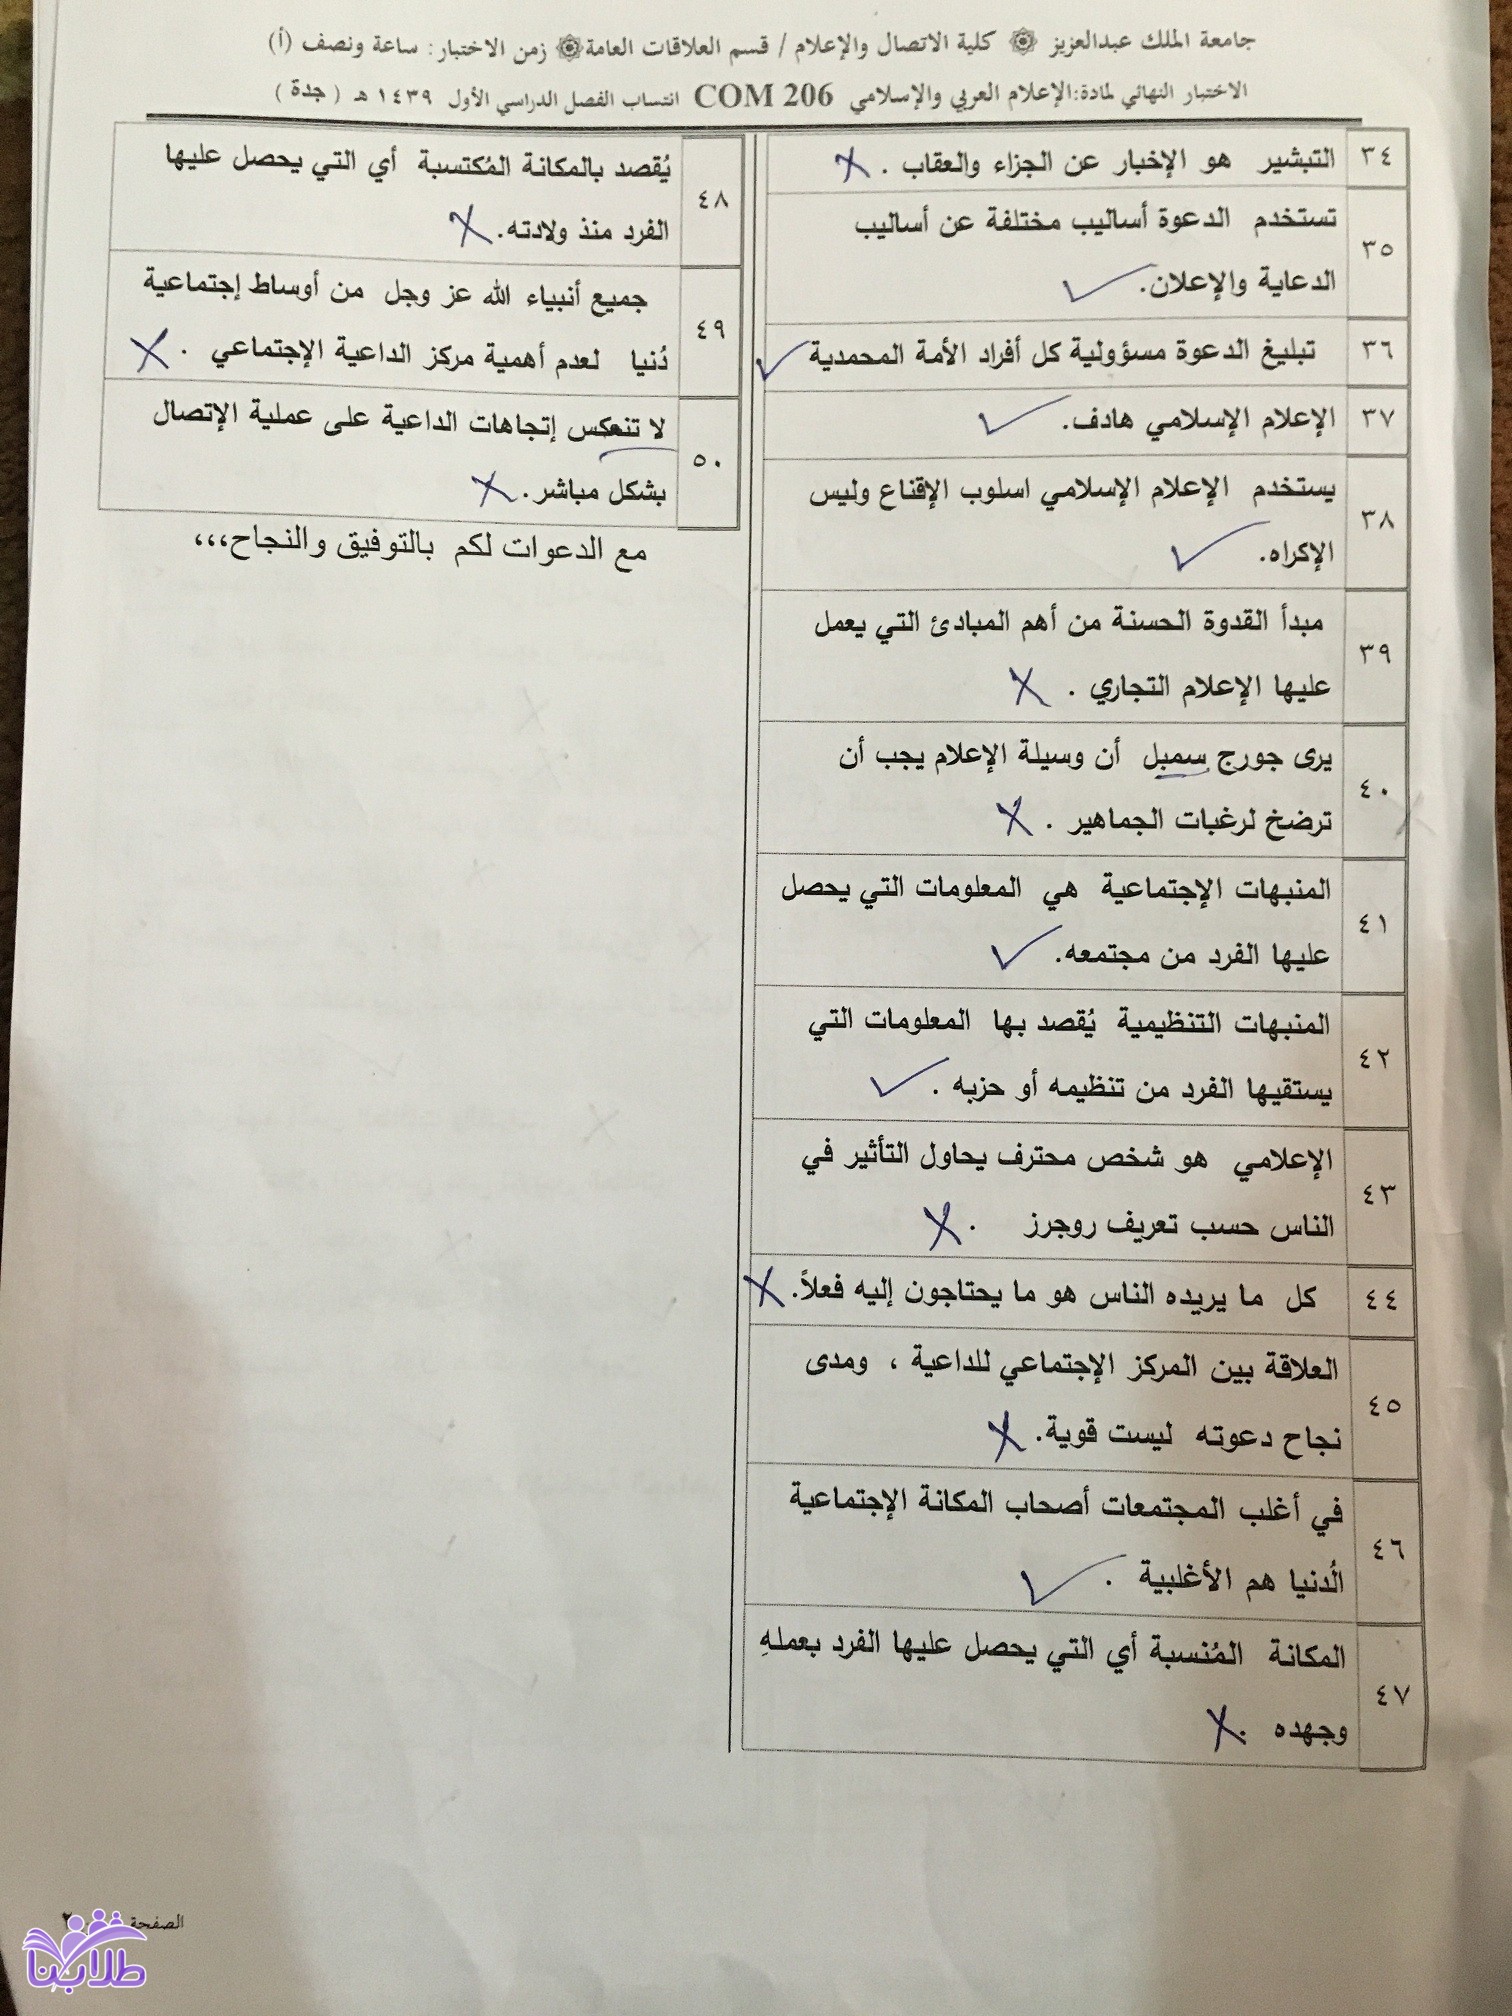 جامعة الملك عبدالعزيز ۞ كلية الاتصال والإعلام / قسم العلاقات العامة ۞ زمن الاختبار: ساعة ونصف (أ)
الاختبار النهائي لمادة:الإعلام العربي والإسلامي COM 206 انتساب الفصل الدراسي الأول ١٤٣٩ هـ ( جدة )
٣٤ التبشير هو الإخبار عن الجزاء والعقاب . ✗
٣٥ تستخدم الدعوة أساليب مختلفة عن أساليب
الدعاية والإعلان. ✓
٣٦ تبليغ الدعوة مسؤولية كل أفراد الأمة المحمدية ✓
٣٧ الإعلام الإسلامي هادف. ✓
٣٨ يستخدم الإعلام الإسلامي اسلوب الإقناع وليس
الإكراه. ✓
٣٩ مبدأ القدوة الحسنة من أهم المبادئ التي يعمل
عليها الإعلام التجاري . ✗
٤٠ يرى جورج سمبل أن وسيلة الإعلام يجب أن
ترضخ لرغبات الجماهير . ✗
٤١ المنبهات الإجتماعية هي المعلومات التي يحصل
عليها الفرد من مجتمعه. ✓
٤٢ المنبهات التنظيمية يُقصد بها المعلومات التي
يستقيها الفرد من تنظيمه أو حزبه . ✓
٤٣ الإعلامي هو شخص محترف يحاول التأثير في
الناس حسب تعريف روجرز . ✗
٤٤ كل ما يريده الناس هو ما يحتاجون إليه فعلاً. ✗
٤٥ العلاقة بين المركز الإجتماعي للداعية ، ومدى
نجاح دعوته ليست قوية. ✗
٤٦ في أغلب المجتمعات أصحاب المكانة الإجتماعية
الُدنيا هم الأغلبية . ✓
٤٧ المكانة المُنسبة أي التي يحصل عليها الفرد بعملهِ
وجهده . ✗
٤٨ يُقصد بالمكانة المُكتسبة أي التي يحصل عليها
الفرد منذ ولادته. ✗
٤٩ جميع أنبياء الله عز وجل من أوساط إجتماعية
دُنيا لعدم أهمية مركز الداعية الإجتماعي . ✗
٥٠ لا تنعكس إتجاهات الداعية على عملية الإتصال
بشكل مباشر. ✗
مع الدعوات لكم بالتوفيق والنجاح،،،
الصفحة
طلابنا